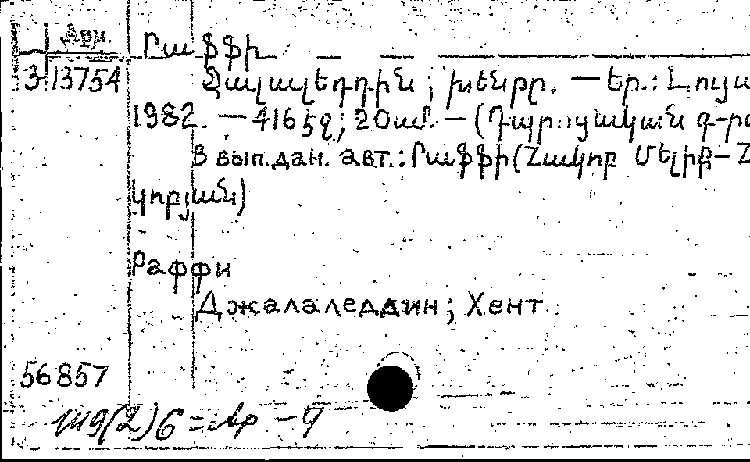 Арм. Րաֆֆի
3-13754 Ջալալեդդին; Խենթը. — Եր.: Լույս
1982. — 416 էջ; 20 սմ. — (Դպրոցական գ-րա
В вып.дан. авт.: Րաֆֆի (Հակոբ Մելիք-Հ
կոբյան)
Раффи
Джалаледдин; Хент
56857